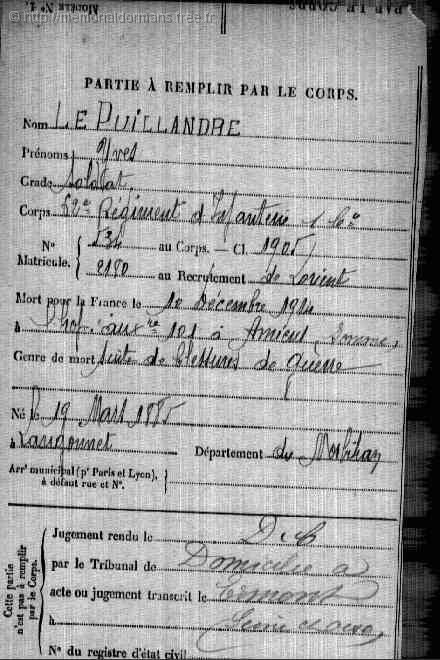 © http://memorialdormans.free.fr
MODÈLE N° 1.
PAR LE CORPS
PARTIE À REMPLIR PAR LE CORPS.
Nom LE PUILLANDRE
Prénoms Yves
Grade Soldat
Corps 62e Régiment d'Infanterie
N° 534 au Corps. — Cl. 1905
Matricule. 2180 au Recrutement de Lorient
Mort pour la France le 10 Décembre 1914
à l'Hop. aux re 101 à Amiens, Somme,
Genre de mort Suite de blessures de guerre
Né le 19 Mars 1885
à Langonnet Département du Morbihan
Arr' municipal (p' Paris et Lyon),
à défaut rue et N°.
Cette partie
n'est pas à remplir
par le Corps.
Jugement rendu le
par le Tribunal de Domicilié à
acte ou jugement transcrit le Ermont
à Seine et Oise,
N° du registre d'état civil